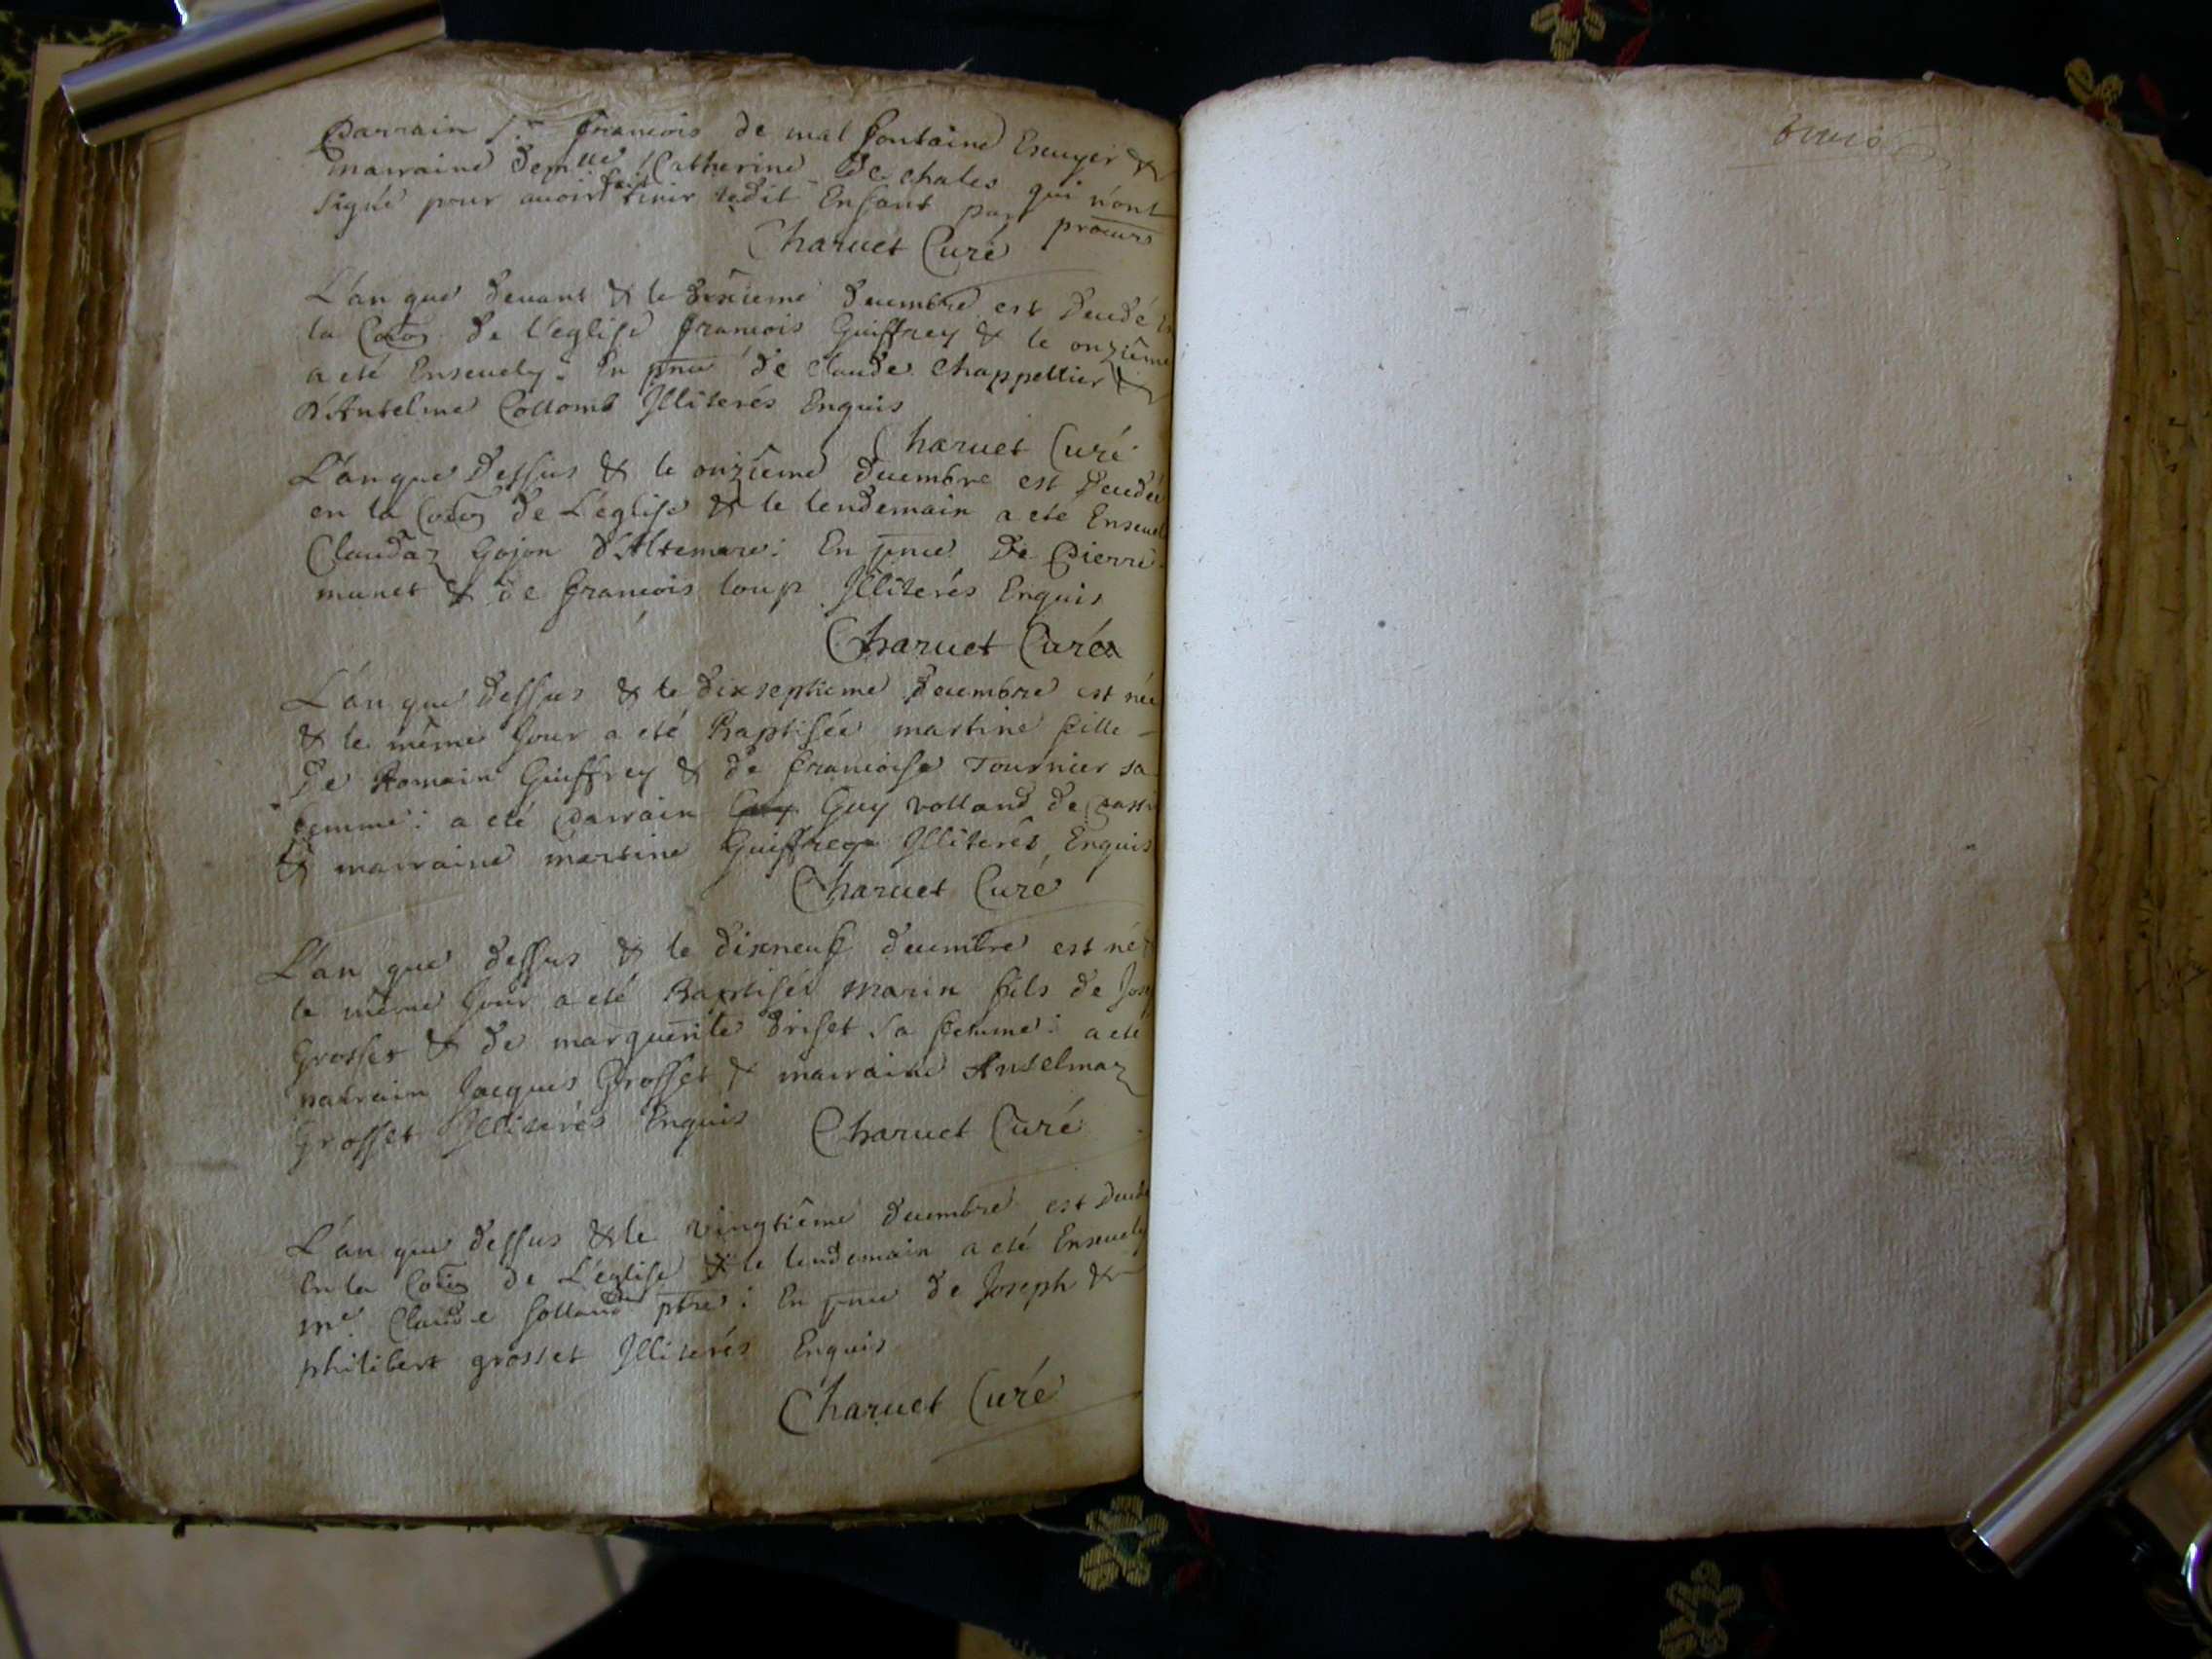 Parrain Sr francois de mal fontaine Escuyer &
marraine demlle Catherine De chales qui n'ont
signé pour avoir fait tenir ledit Enfant par procurs
Charuet Curé
L'an que devant & le dixieme decembre est decedé
la Coion de l'eglise francois Guiffrey & le onzième
a eté Ensevely: En pnce de Claude Chappellier &
d'Antelme Collomb Illiterés Enquis
Charuet Curé
L'an que dessus & le onzième decembre est decedée
en la Coion de L'eglise & le lendemain a eté Ensevel
Claudaz Gojon d'Altemare: En pnce De Pierre
munet & de francois loup Illiterés Enquis
Charuet Curé
L'an que dessus & le dixseptieme decembre est née
& le même Jour a eté Baptisée martine fille
De Romain Guiffrey & de francoise Tournier sa
femme: a eté Parrain Guy volland de
& marraine martine Guiffrey Illiterés Enquis
Charuet Curé
L'an que dessus & le dixneuf decembre est né
le même Jour a eté Baptisée Marin fils de Jos
Grosset & de marguerite Briset sa femme: a eté
parrain Jacques Grosset & marraine Anselmaz
Grosset Illiterés Enquis Charuet Curé
L'an que dessus & le vingtième decembre est decede
En la Coion de L'eglise & le lendemain a eté Ensevely
me Claude Solland ptre: En pnce de Joseph &
philibert grosset Illiterés Enquis
Charuet Curé